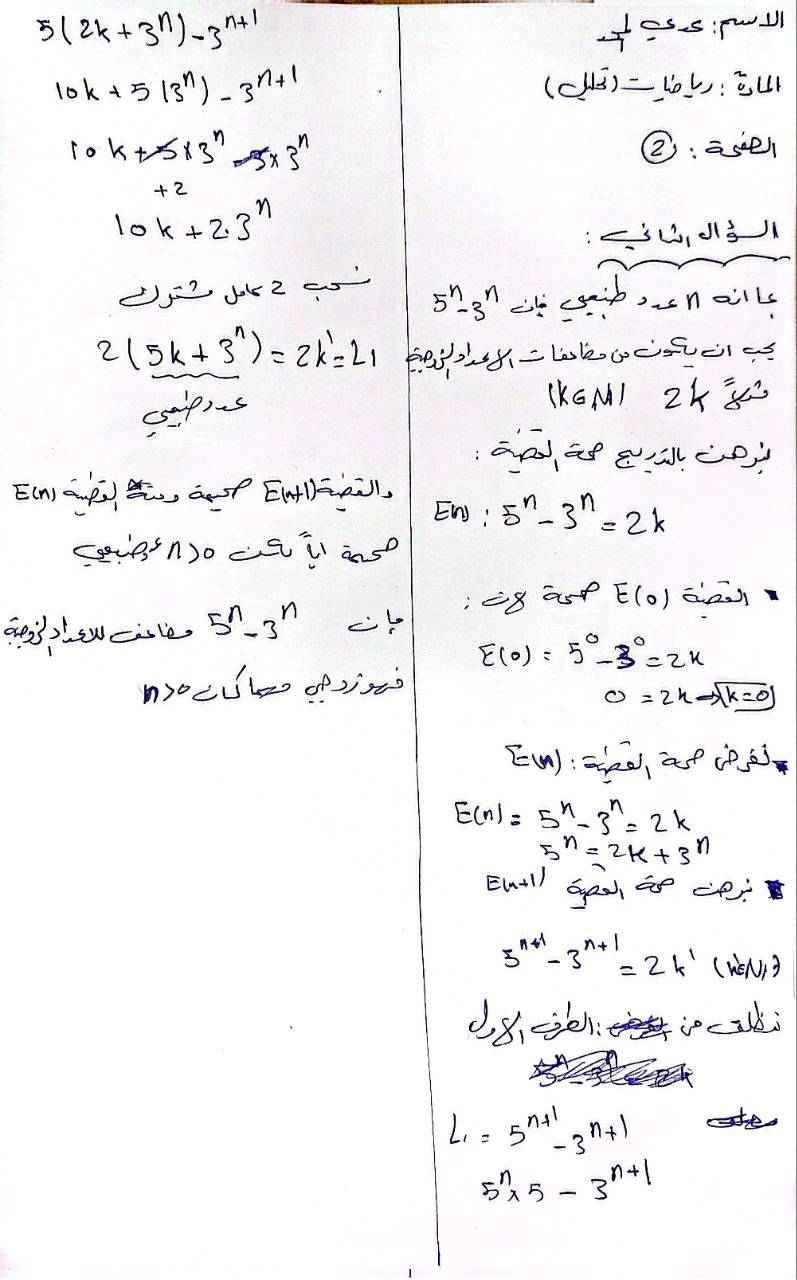 الاسم: عدي
المادة: رياضيات (تحليل)
الصفحة: 2
السؤال الثاني:
بما انه n عدد طبيعي فإن 5ⁿ - 3ⁿ
يجب ان يكون من مضاعفات الاعداد الزوجية
مثلاً 2k (k∈N)
نبرهن بالتدريج صحة القضية:
E(n): 5ⁿ - 3ⁿ = 2k
القضية E(0) صحة لان:
E(0) = 5⁰ - 3⁰ = 2k
0 = 2k ⇒ k=0
نفرض صحة القضية: E(n)
E(n) = 5ⁿ - 3ⁿ = 2k
5ⁿ = 2k + 3ⁿ
نبرهن صحة القضية E(n+1)
5ⁿ⁺¹ - 3ⁿ⁺¹ = 2k' (k'∈N)
ننطلق من الطرف الاول
L₁ = 5ⁿ⁺¹ - 3ⁿ⁺¹
5ⁿ × 5 - 3ⁿ⁺¹
5(2k + 3ⁿ) - 3ⁿ⁺¹
10k + 5(3ⁿ) - 3ⁿ⁺¹
10k + 5×3ⁿ - 3×3ⁿ
+2
10k + 2·3ⁿ
نسحب 2 عامل مشترك
2(5k + 3ⁿ) = 2k' = L₁
عدد طبيعي
والقضية E(n+1) صحيحة ومنه القضية E(n)
صحيحة اياً يكن n>0 طبيعي
فإن 5ⁿ - 3ⁿ مضاعف للاعداد الزوجية
فهو زوجي مهما كان n>0